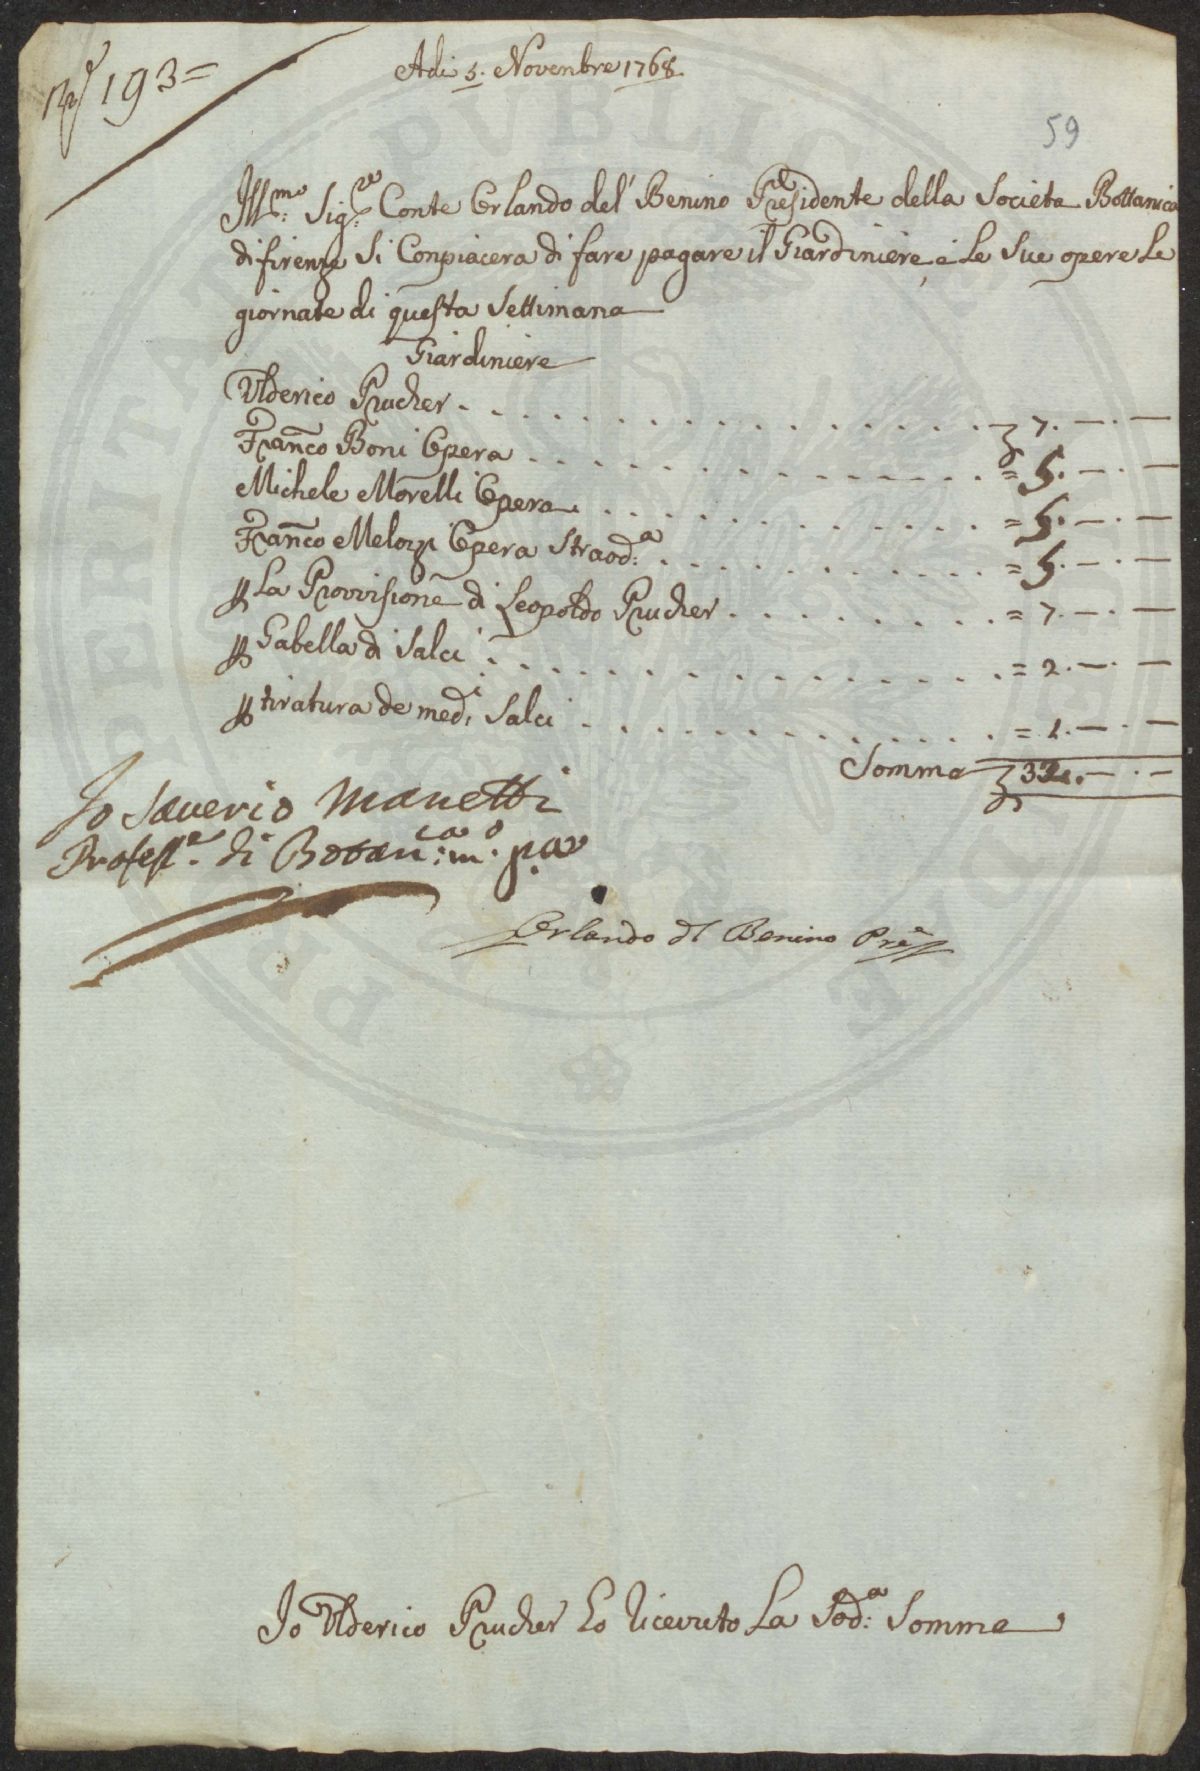 N.° 193=
Adi 5. Novenbre 1768.
59
Ill.mo Sig.re Conte Erlando del' Benino Presidente della Societa Bottanica
di firenze Si Conpiacera di fare pagare il Giardiniere, e Le Sue opere Le
giornate di questa Settimana
Giardiniere
Ulderico Prucher . . . . . . . . . . . . . . . . . . 7. — . —
Franco Boni Opera . . . . . . . . . . . . . . . . = 5. — . —
Michele Morelli Opera . . . . . . . . . . . . . . = 5. — . —
Franco Melozzi Opera Straod:a . . . . . . . . . . . . = 5. — . —
p La Provvisione di Leopoldo Prucher . . . . . . . . . = 7. — . —
p Gabella di Salci . . . . . . . . . . . . . . . . . = 2. — . —
p tiratura de med:i Salci . . . . . . . . . . . . . . = 1. — . —
Somma 32. — . —
Io Saverio Manetti
Profess.e di Botan:ca m.o p.a
Orlando del Benino Pre
Io Ulderico Prucher Lo Ricevuto La Sod:a Somma
PERITAT PVBLIC